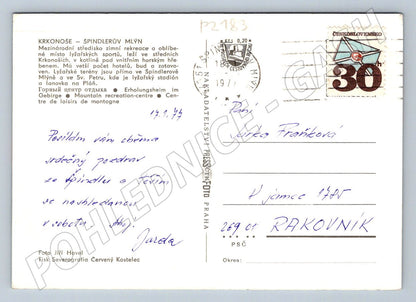 P2183
KRKONOŠE — ŠPINDLERŮV MLÝN
Mezinárodní středisko zimní rekreace a oblíbené místo lyžařských sportů, leží ve středních Krkonoších, v kotlině pod vnitřním horským hřebenem. Má velší počet hotelů, bud a zotavoven. Lyžařské terény jsou přímo ve Špindlerově Mlýně a ve Sv. Petru, kde je lyžařský stadión a lanovka na Pláň.
Горный центр отдыха ● Erholungsheim im Gebirge ● Mountain recreation-centre ● Centre de loisirs de montagne
17.1.79
Posílám vám oběma
srdečný pozdrav
ze Špindlu a těším
se na shledanou
v sobotu. Ahoj
Jarda
Foto Jiří Havel
Tisk Severografia Červený Kostelec
NAKLADATELSTVÍ PRESSFOTO PRAHA
ČESKOSLOVENSKO
30h
Paní
Jiřka Fraňková
U jamec 1775
269 01 RAKOVNÍK
PSČ
Okres:
POHLEDNICE - GALM